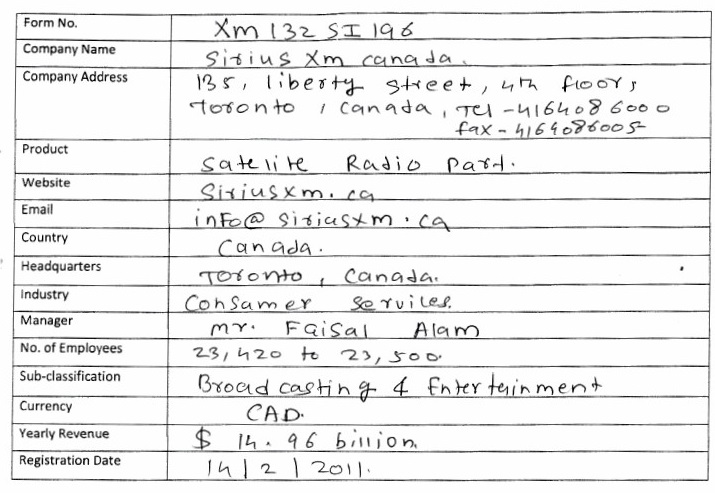 Form No. Xm 132 SI 196
Company Name Sirius Xm canada.
Company Address 135, liberty street, 4th floor,
Toronto, Canada, Tel - 4164086000
fax - 4164086005
Product Satelite Radio Part.
Website Siriusxm.ca
Email info@siriusxm.ca
Country Canada.
Headquarters Toronto, Canada.
Industry Consamer Services.
Manager mr. Faisal Alam
No. of Employees 23,420 to 23,500.
Sub-classification Broadcasting & Entertainment
Currency CAD.
Yearly Revenue $ 14.96 billion.
Registration Date 14/2/2011.